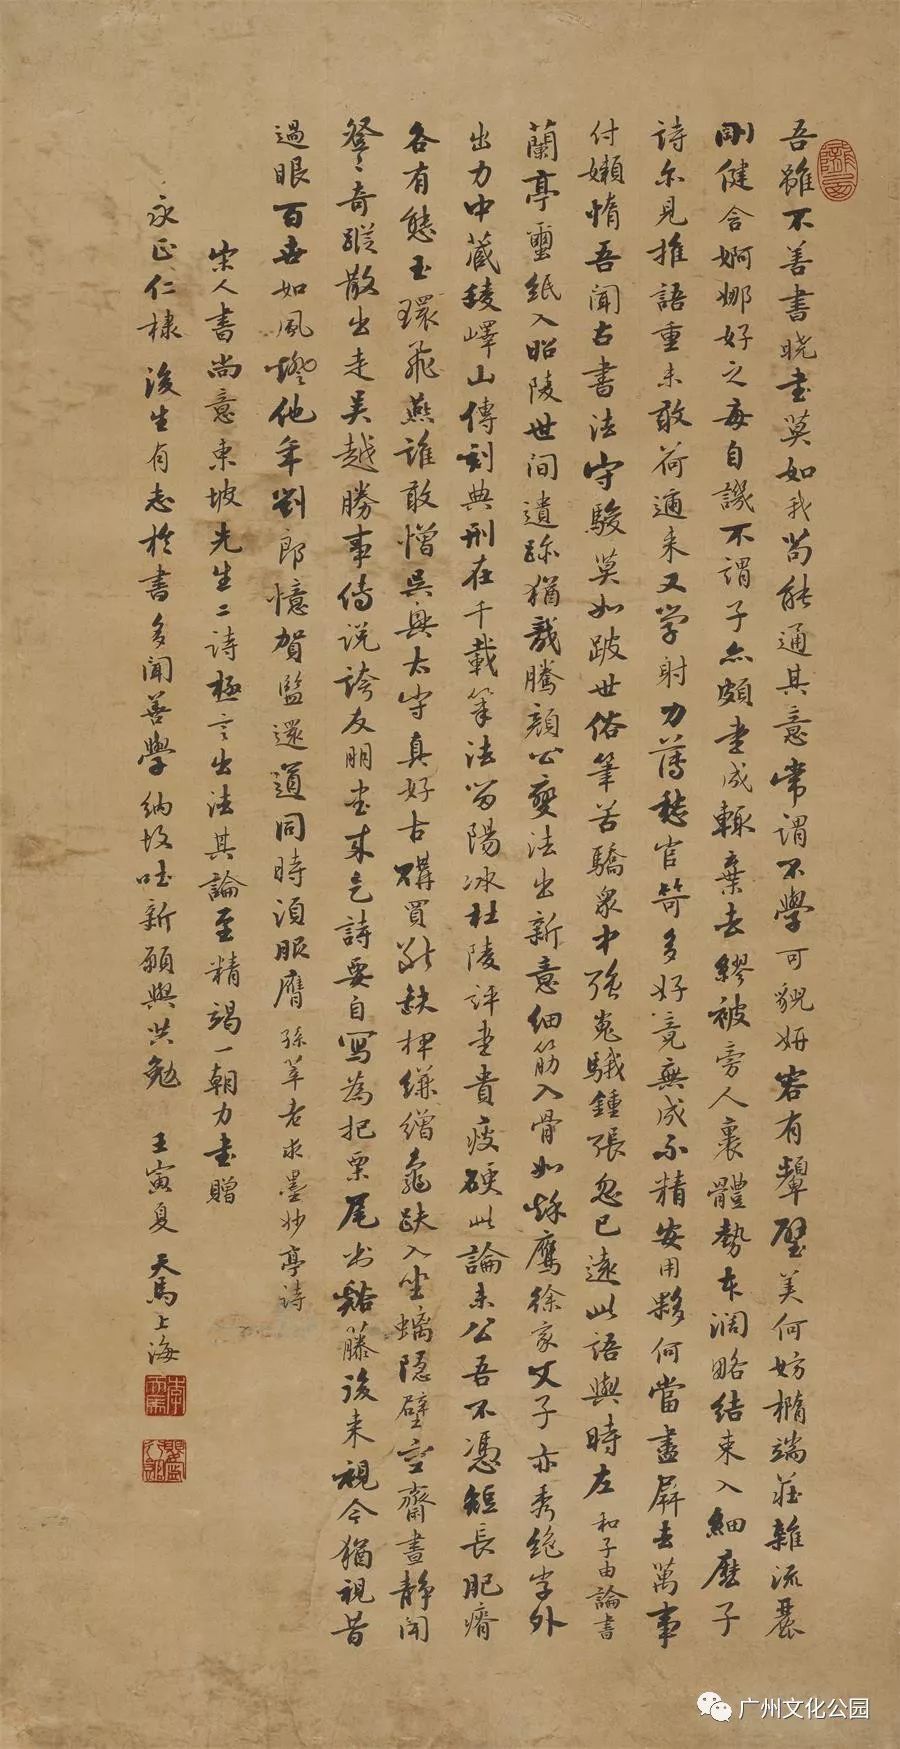 吾雖不善書曉書莫如我苟能通其意常謂不學可貌妍容有顰璧美何妨橢端莊雜流麗
剛健含婀娜好之每自譏不謂子亦頗書成輒棄去繆被旁人裹體勢本闊略結束入細麼子
詩亦見推語重未敢荷邇來又学射力薄愁官笴多好竟無成不精安用夥何當盡屏去萬事
付嬾惰吾聞古書法守駿莫如跛世俗筆苦驕衆中強嵬騀鍾張忽已遠此語與時左 和子由論書
蘭亭璽紙入昭陵世间遺跡猶龍騰顏公變法出新意细筋入骨如秋鷹徐家父子亦秀絶字外
出力中藏稜嶧山傳刻典刑在千載筆法留陽冰杜陵評書貴瘦硬此論未公吾不憑短長肥瘠
各有態玉環飛燕誰敢憎吳興太守真好古購買斷缺揮縑繒龜趺入坐螭隱壁空齋晝静聞
登登奇蹤散出走吴越勝事傳说誇友朋書來乞詩要自寫為把栗尾书谿藤後来視今猶視昔
過眼百世如風燈他年劉郎憶賀監還道同時須服膺 孫莘老求墨妙亭詩
宋人書尚意東坡先生二詩極言出法其論至精竭一朝力書贈
永正仁棣 後生有志於書多聞善學納故吐新願與共勉 壬寅夏 天馬上海
广州文化公园